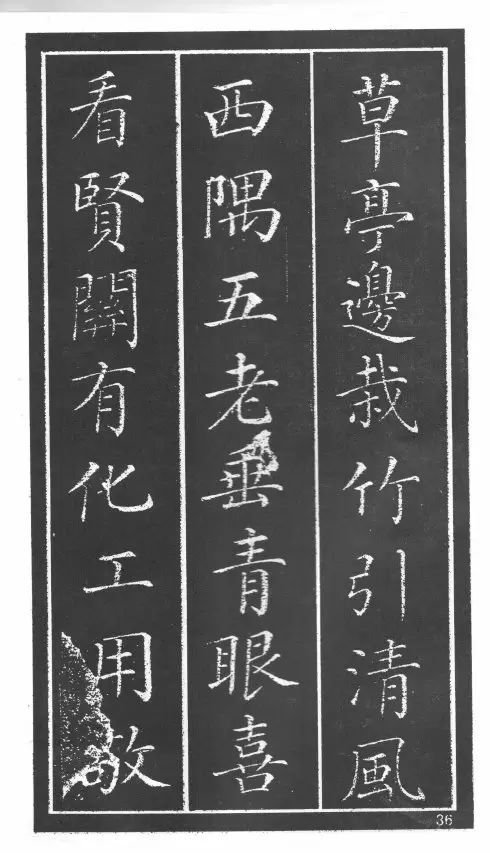 草亭邊栽竹引清風
西隅五老垂青眼喜
看賢關有化工用敬
36